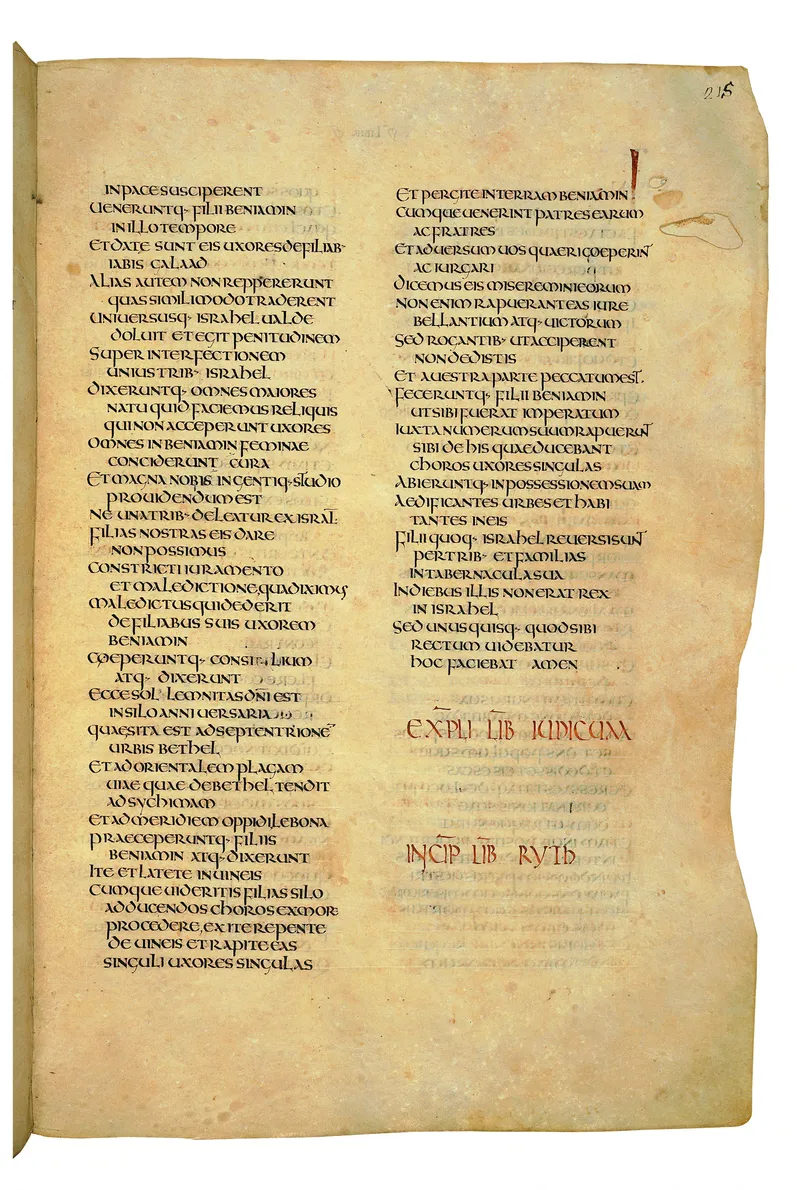 215
IN PACE SUSCIPERENT
UENERUNTQ· FILII BENIAMIN
IN ILLO TEMPORE
ET DATE SUNT EIS UXORES DE FILIAB·
IABIS GALAAD
ALIAS AUTEM NON REPPERERUNT
QUAS SIMILI MODO TRADERENT
UNIUERSUSQ· ISRAHEL UALDE
DOLUIT ET EGIT PENITUDINEM
SUPER INTERFECTIONEM
UNIUS TRIB· ISRAHEL
DIXERUNTQ· OMNES MAIORES
NATU QUID FACIEMUS RELIQUIS
QUI NON ACCEPERUNT UXORES
OMNES IN BENIAMIN FEMINAE
CONCIDERUNT CURA
ET MAGNA NOBIS INGENTIQ· STUDIO
PROUIDENDUM EST
NE UNA TRIB· DELEATUR EX ISRAL̄·
FILIAS NOSTRAS EIS DARE
NON POSSIMUS
CONSTRICTI IURAMENTO
ET MALEDICTIONE QUA DIXIMUS
MALEDICTUS QUI DEDERIT
DE FILIABUS SUIS UXOREM
BENIAMIN
COEPERUNTQ· CONSILIUM
ATQ· DIXERUNT
ECCE SOLLEMNITAS DN̄I EST
IN SILO ANNIUERSARIA
QUAE SITA EST AD SEPTENTRIONĒ
URBIS BETHEL
ET AD ORIENTALEM PLAGAM
UIAE QUAE DE BETHEL TENDIT
AD SYCHIMAM
ET AD MERIDIEM OPPIDI LEBONA
PRAECEPERUNTQ· FILIIS
BENIAMIN ATQ· DIXERUNT
ITE ET LATETE IN UINEIS
CUMQUE UIDERITIS FILIAS SILO
AD DUCENDOS CHOROS EX MOR·
PROCEDERE, EXITE REPENTE
DE UINEIS ET RAPITE EAS
SINGULI UXORES SINGULAS
ET PERGITE IN TERRAM BENIAMIN
CUMQUE UENERINT PATRES EARUM
AC FRATRES
ET ADUERSUM UOS QUAERI COEPERIN̄T
AC IURGARI
DICEMUS EIS MISEREMINI EORUM
NON ENIM RAPUERANT EAS IURE
BELLANTIUM ATQ· UICTORUM
SED ROGANTIB· UT ACCIPERENT
NON DEDISTIS
ET A UESTRA PARTE PECCATUM EST.
FECERUNTQ· FILII BENIAMIN
UT SIBI FUERAT IMPERATUM
IUXTA NUMERUM SUUM RAPUERUN̄T
SIBI DE HIS QUAE DUCEBANT
CHOROS UXORES SINGULAS
ABIERUNTQ· IN POSSESSIONEM SUAM
AEDIFICANTES URBES ET HABI
TANTES IN EIS
FILII QUOQ· ISRAHEL REUERSI SUN̄T
PER TRIB· ET FAMILIAS
IN TABERNACULA SUA
IN DIEBUS ILLIS NON ERAT REX
IN ISRAHEL
SED UNUSQUISQ· QUOD SIBI
RECTUM UIDEBATUR
HOC FACIEBAT AMEN
EXPLI LIB IUDICUM
INCIP LIB RUTH